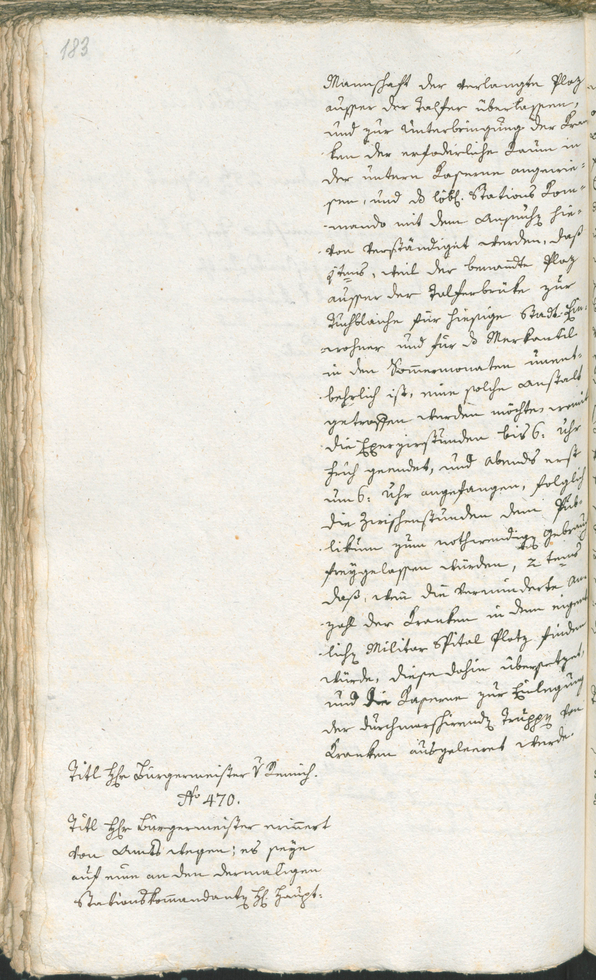 183
Mannschaft der verlangte Plaz
ausser der Talfer überlassen,
und zur Unterbringung der Kran-
ken der erforderliche Raum in
der untern Kaserne angewie-
sen, und dß löbl. Stations Kom-
mando mit dem Ansuchen hie-
von verständiget werden, daß
1tens, weil der benannte Plaz
ausser der Talferbrücke zur
Tuchblaiche für hiesige Stadt Ein-
wohner und für dß Merkantil
in den Sommermonaten unent-
behrlich ist, eine solche Anstalt
getroffen werden möchte, womit
die Exerzierstunden bis 6: Uhr
fruh geendet, und Abends erst
um 6: Uhr angefangen, folglich
die Zwischenstunden dem Pub-
likum zum nothwendigen Gebrauch
freygelassen würden, 2tens
daß, wenn die verminderte An-
zahl der Kranken in dem eigent-
lichen Militar Spital Platz finden
würde, diese dahin übersetzet,
und die Kaserne zur Einlegung
der durchmarschirenden Truppen von
Kranken ausgeleeret werde.
Titl Hr Bürgermeister v Remich.
No 470.
Titl Hr Bürgermeister erinnert
von Amts wegen; es seye
auf eine an den dermaligen
Stationskommandanten H: Haupt-